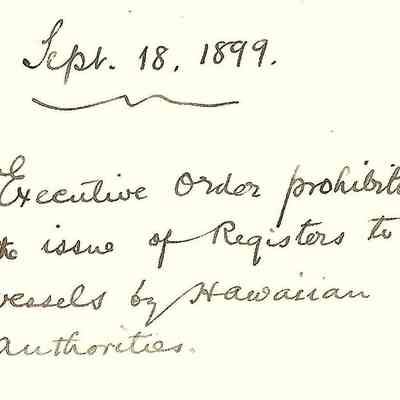 Sept. 18, 1899.
Executive Order prohibits
the issue of Registers to
vessels by Hawaiian
authorities.